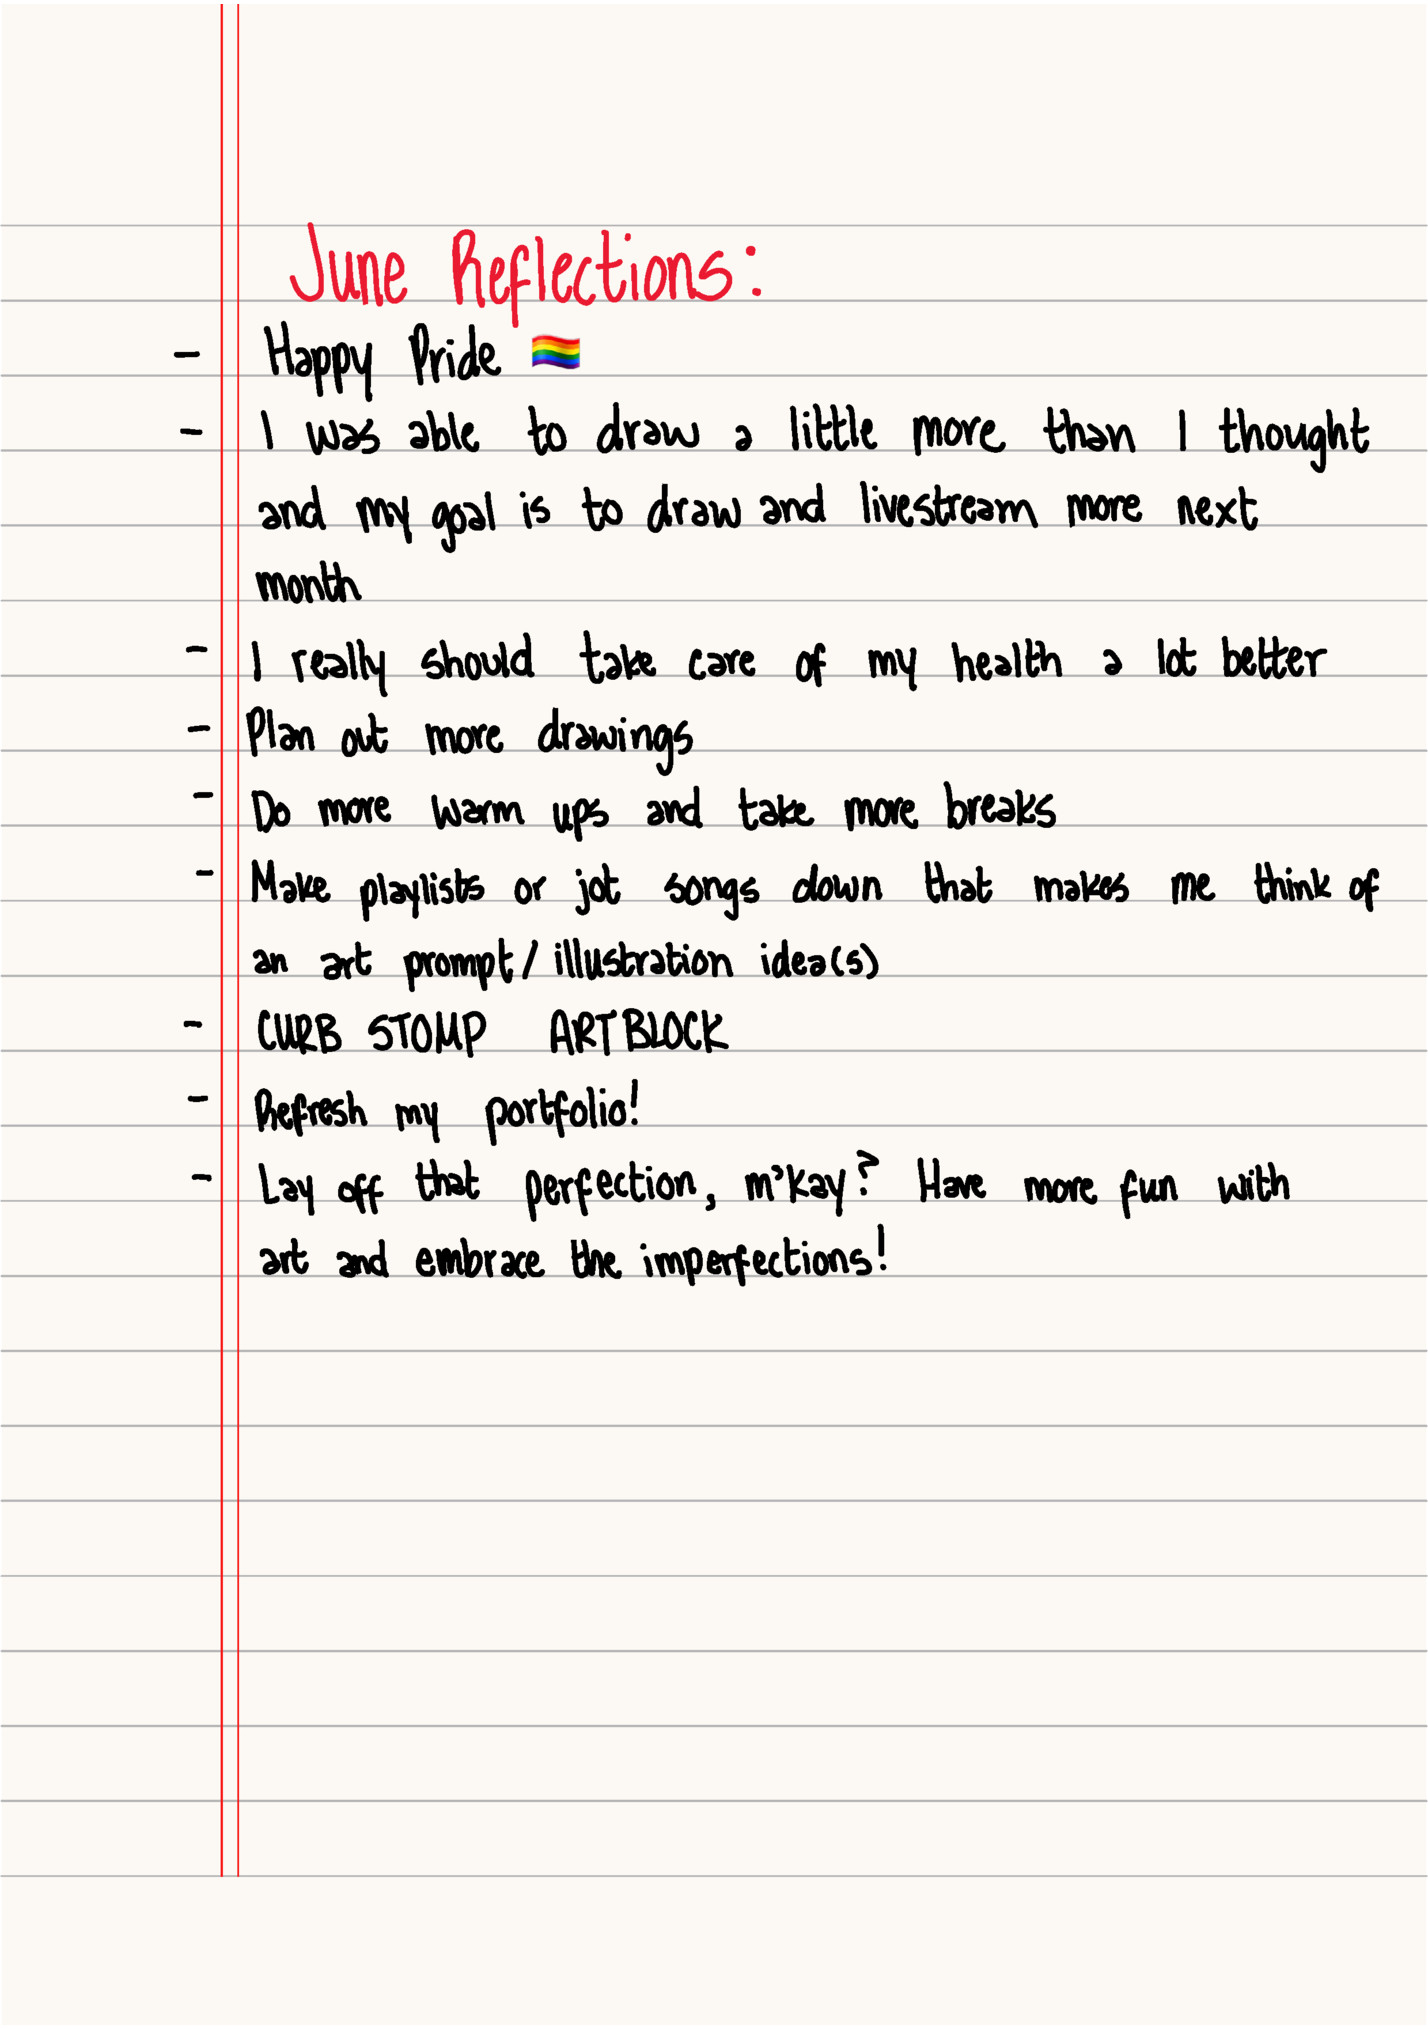 June Reflections:
- Happy Pride 🏳️‍🌈
- I was able to draw a little more than I thought
and my goal is to draw and livestream more next
month
- I really should take care of my health a lot better
- Plan out more drawings
- Do more warm ups and take more breaks
- Make playlists or jot songs down that makes me think of
an art prompt/illustration idea(s)
- CURB STOMP ARTBLOCK
- Refresh my portfolio!
- Lay off that perfection, m'kay? Have more fun with
art and embrace the imperfections!